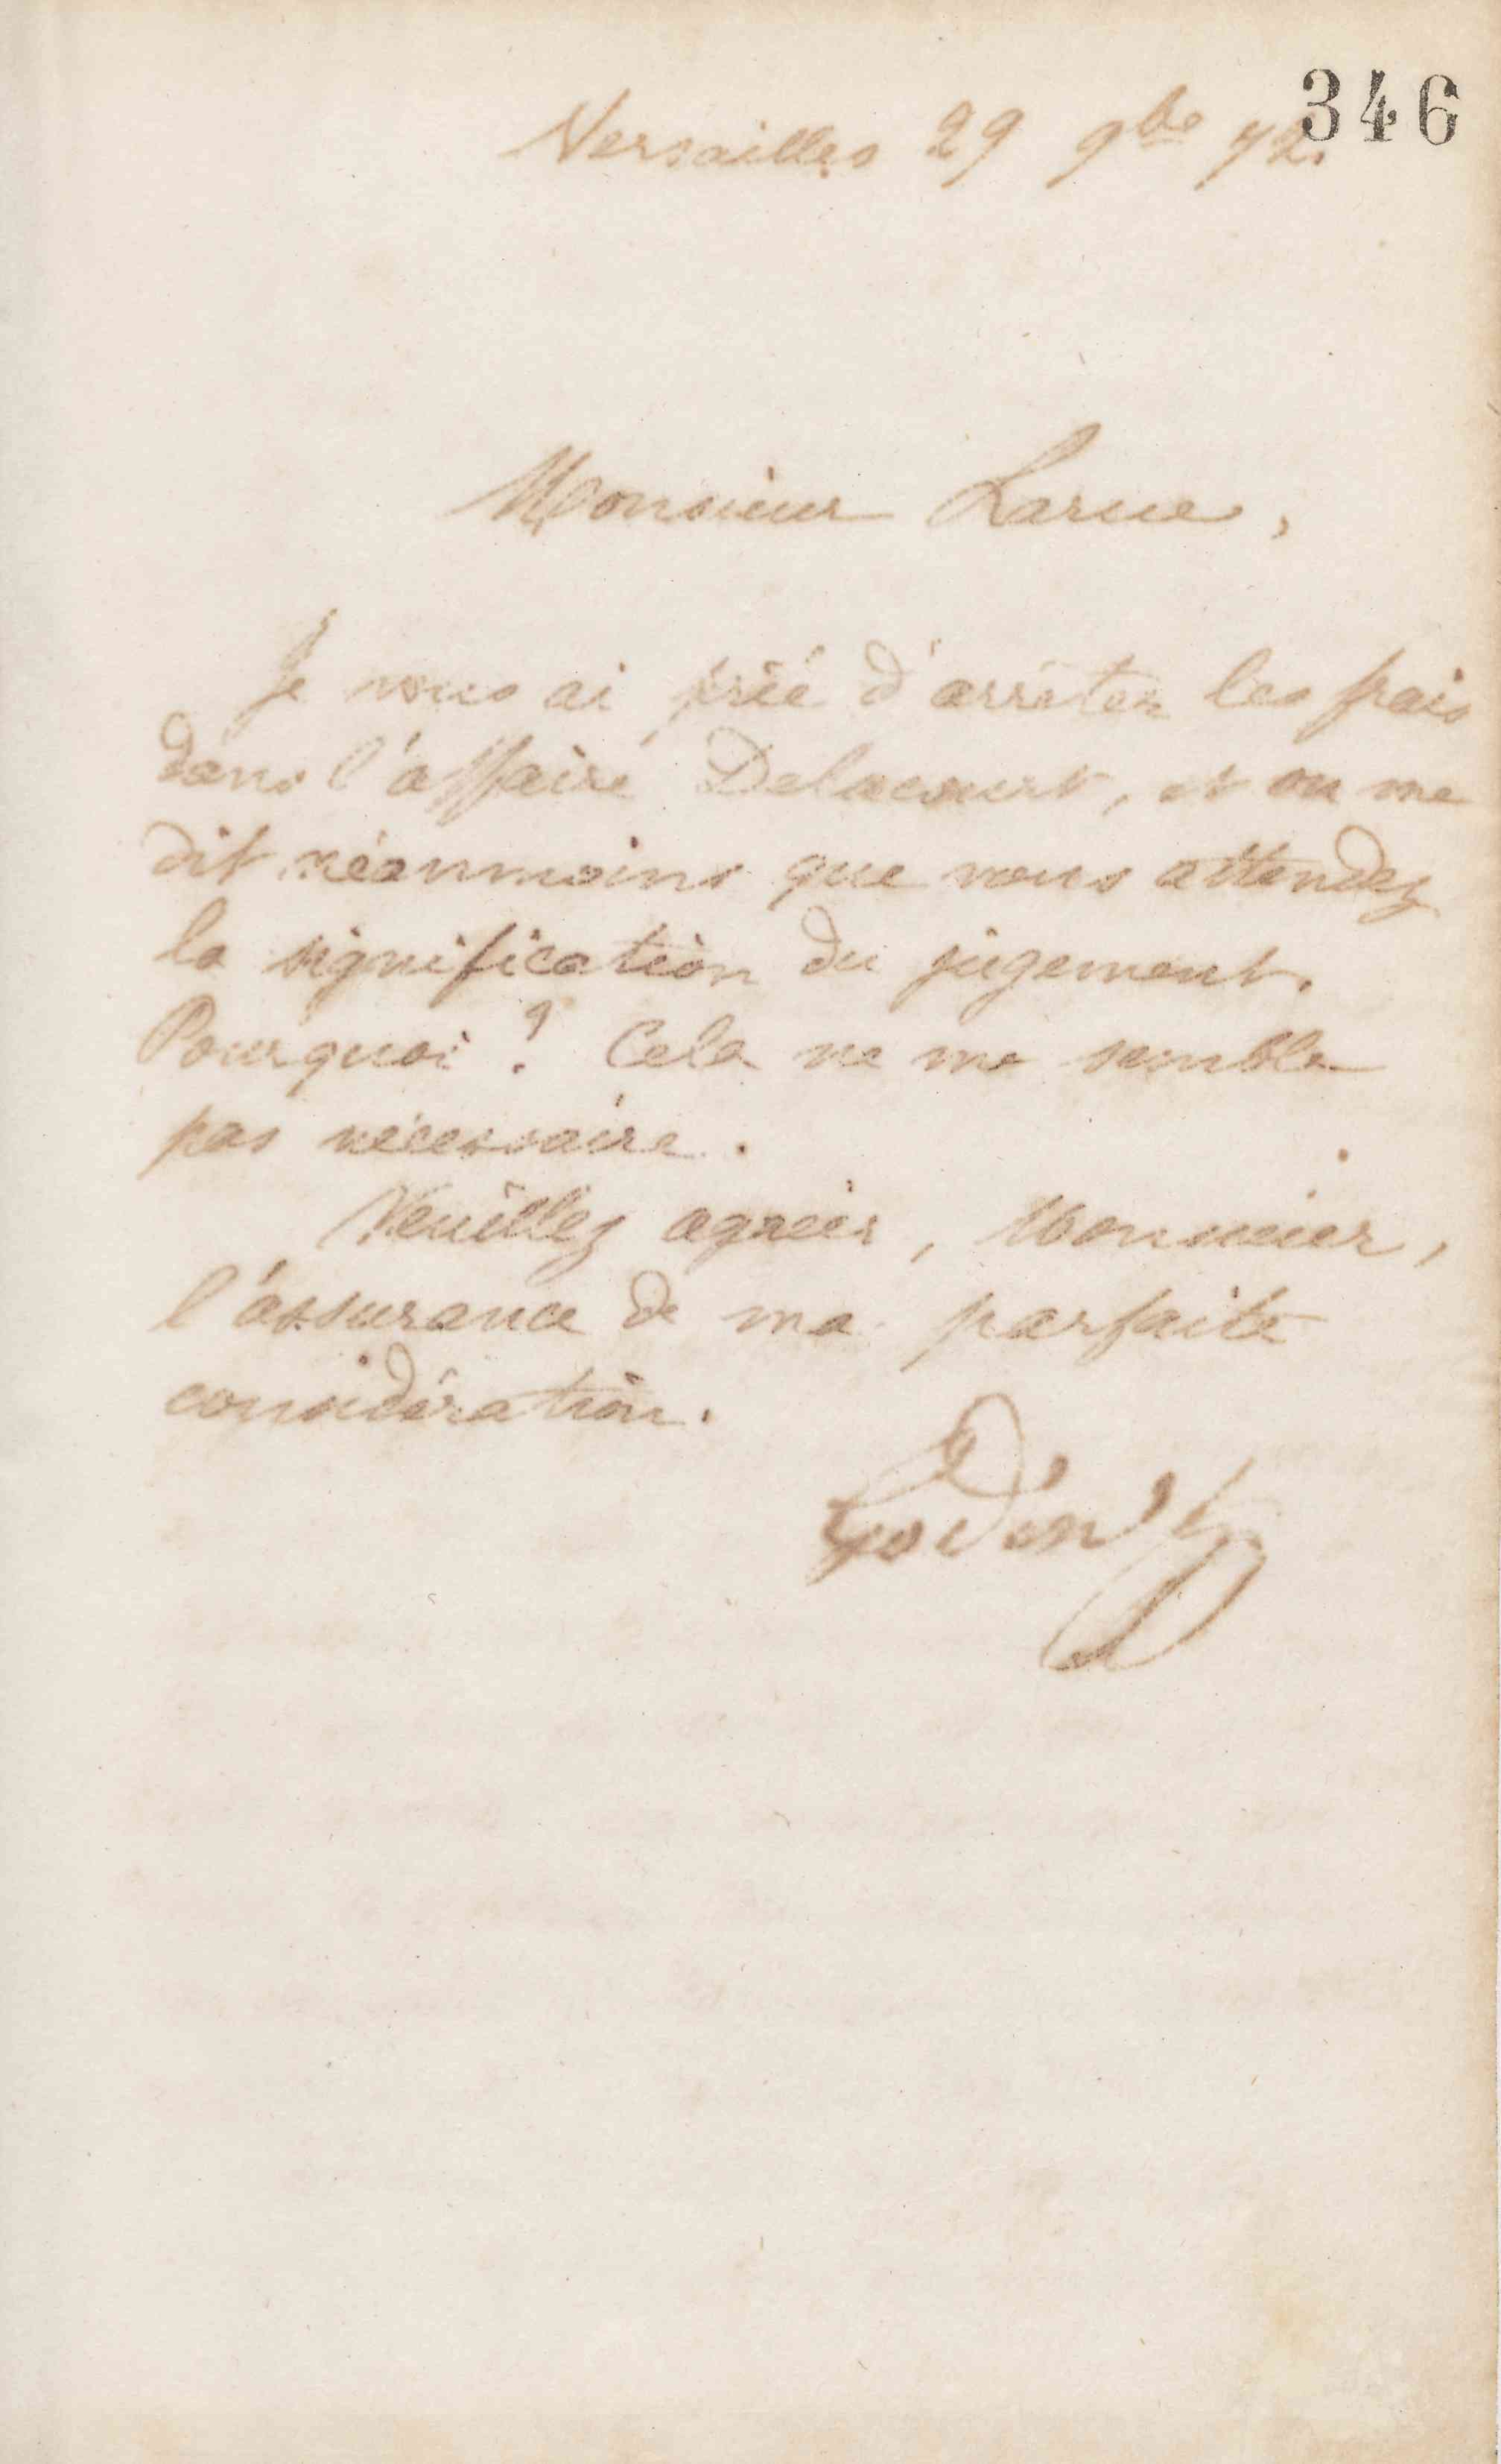 346
Versailles 29 9bre 72.
Monsieur Larue,
Je vous ai prié d'arrêter les frais
dans l'affaire Delacourt, et on me
dit néanmoins que vous attendez
la signification du jugement.
Pourquoi ? Cela ne me semble
pas nécessaire.
Veuillez agréer, Monsieur,
l'assurance de ma parfaite
considération.
Godin